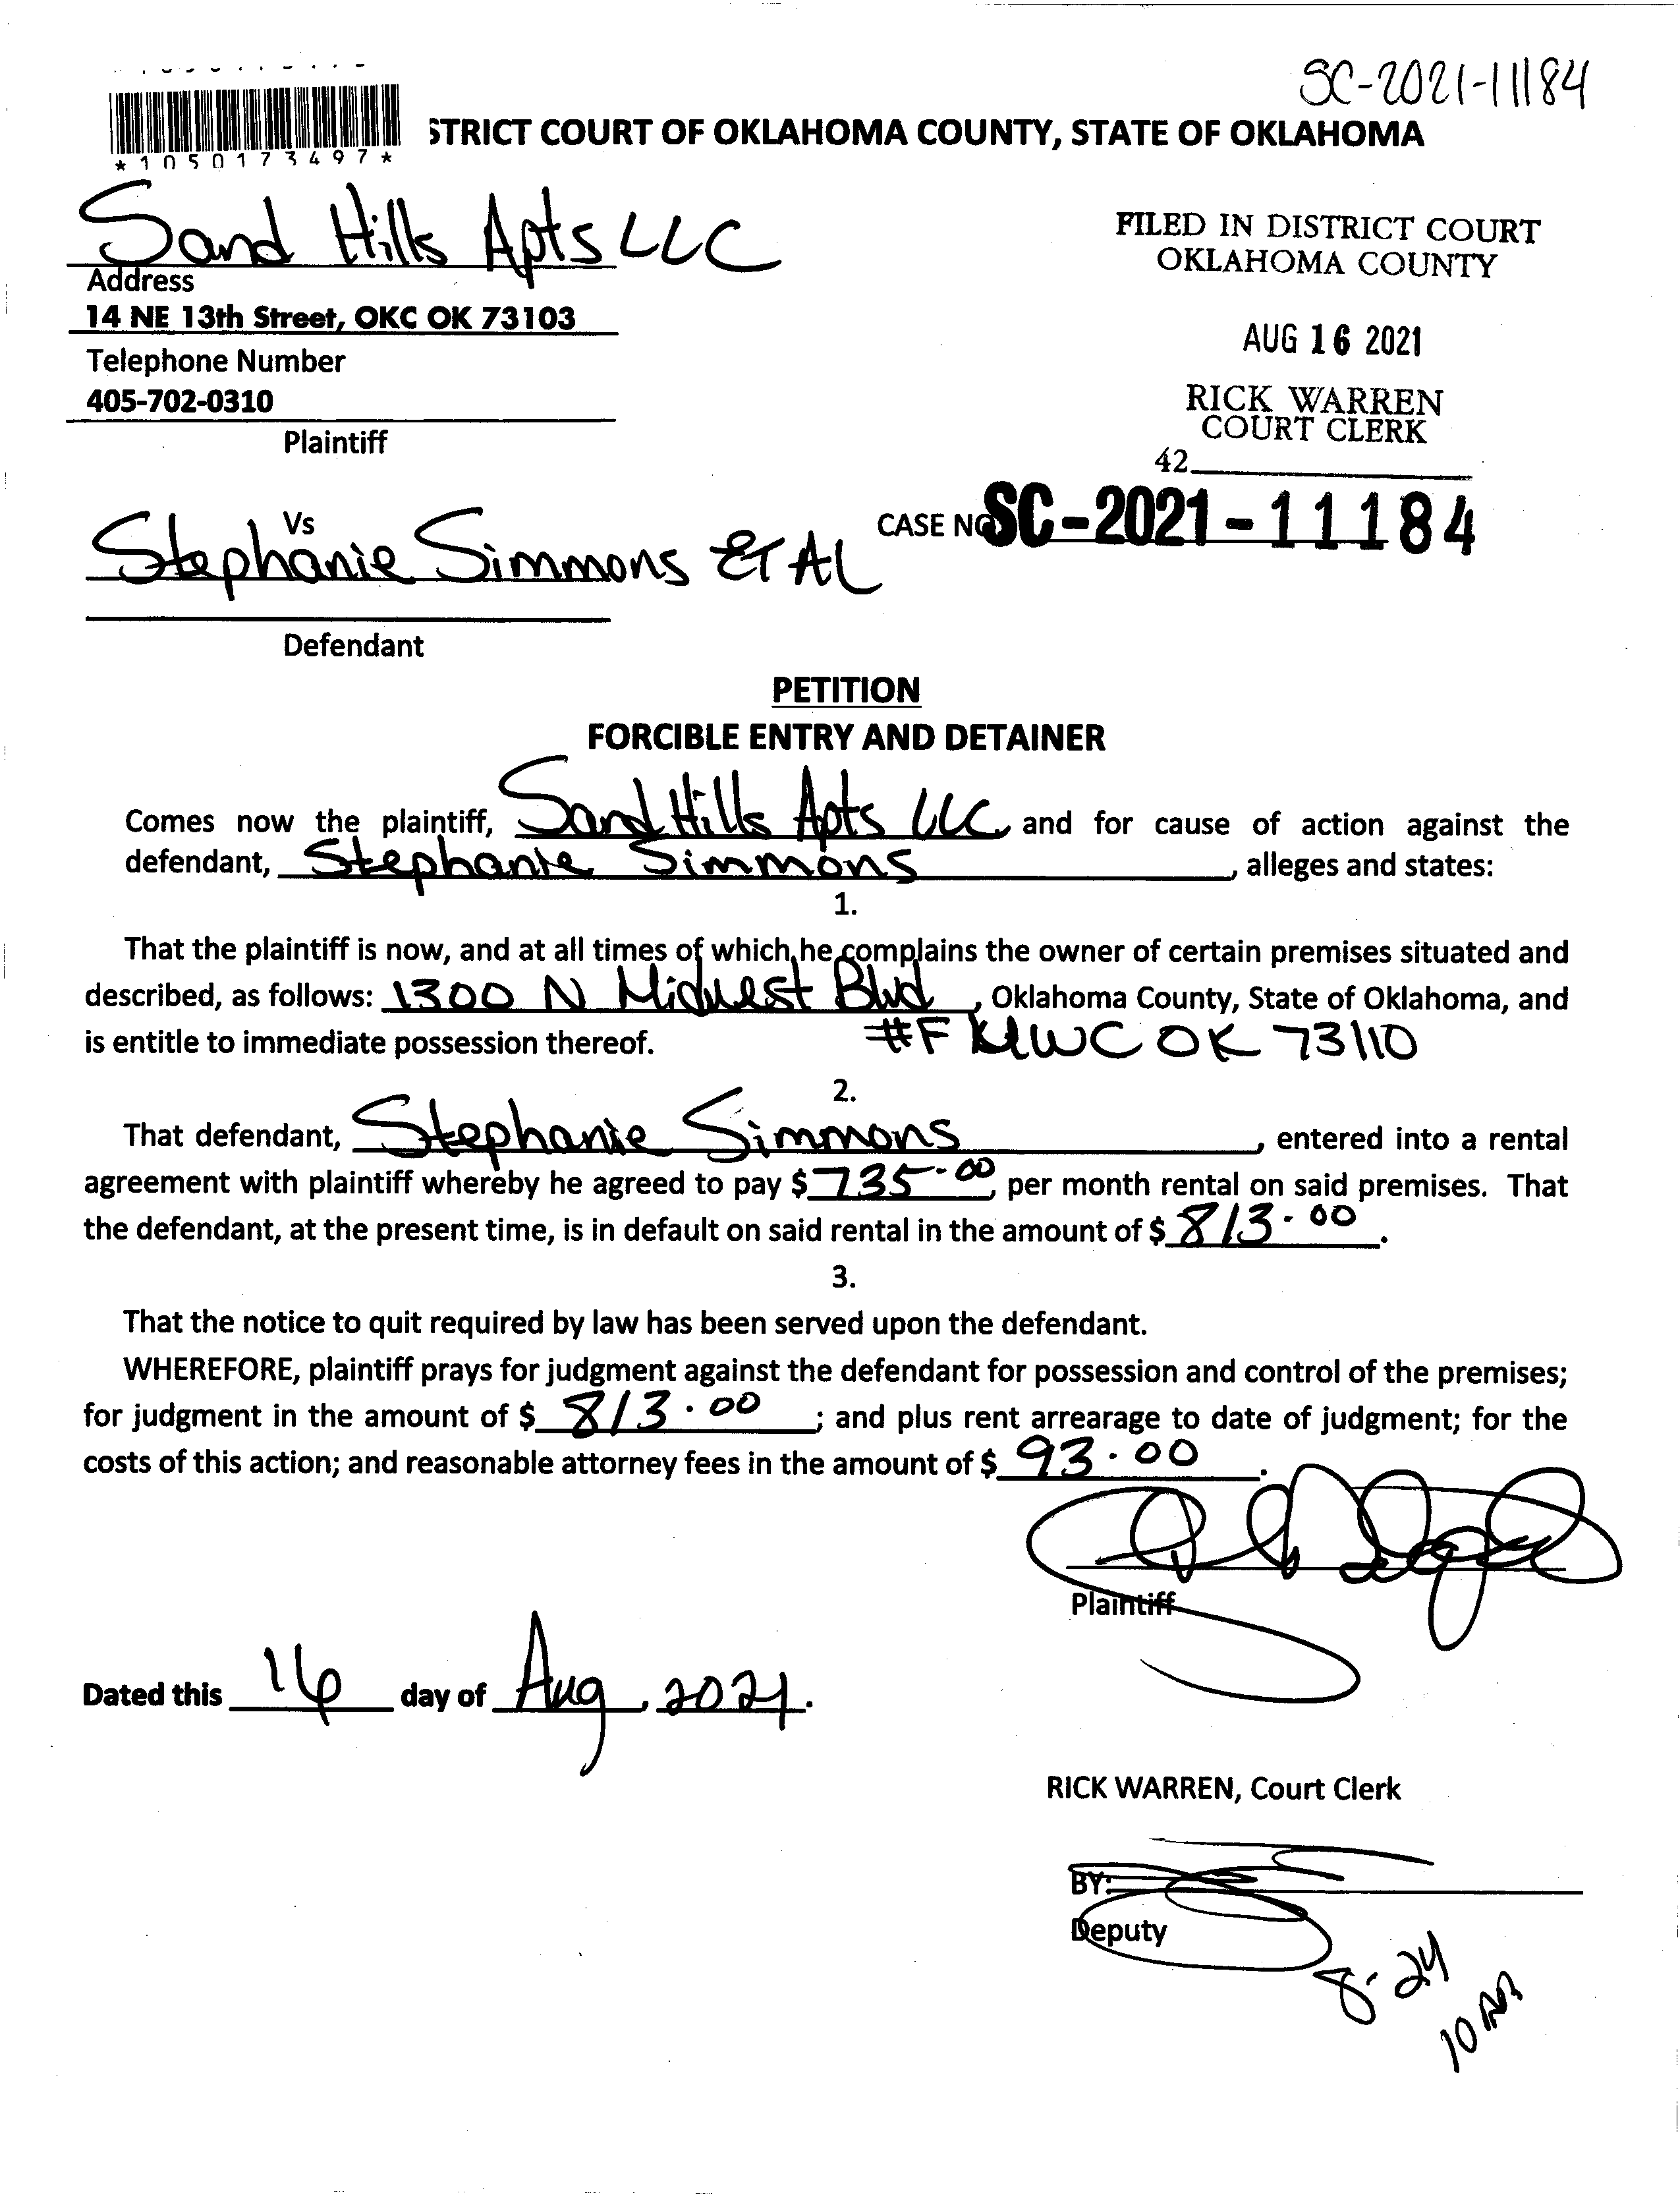 SC-2021-11184
STRICT COURT OF OKLAHOMA COUNTY, STATE OF OKLAHOMA
*1050173497*
Sand Hills Apts LLC
Address
14 NE 13th Street, OKC OK 73103
Telephone Number
405-702-0310
Plaintiff
FILED IN DISTRICT COURT
OKLAHOMA COUNTY
AUG 16 2021
RICK WARREN
COURT CLERK
42
Vs
CASE NO SC-2021-11184
Stephanie Simmons ET AL
Defendant
PETITION
FORCIBLE ENTRY AND DETAINER
Comes now the plaintiff, Sand Hills Apts LLC, and for cause of action against the
defendant, Stephanie Simmons, alleges and states:
1.
That the plaintiff is now, and at all times of which he complains the owner of certain premises situated and
described, as follows: 1300 N Midwest Blvd, Oklahoma County, State of Oklahoma, and
is entitle to immediate possession thereof. #F MWC OK 73110
2.
That defendant, Stephanie Simmons, entered into a rental
agreement with plaintiff whereby he agreed to pay $ 735.00, per month rental on said premises. That
the defendant, at the present time, is in default on said rental in the amount of $ 813.00.
3.
That the notice to quit required by law has been served upon the defendant.
WHEREFORE, plaintiff prays for judgment against the defendant for possession and control of the premises;
for judgment in the amount of $ 813.00; and plus rent arrearage to date of judgment; for the
costs of this action; and reasonable attorney fees in the amount of $ 93.00.
Plaintiff
Dated this 16 day of Aug, 2021.
RICK WARREN, Court Clerk
BY:
Deputy
8-24
10